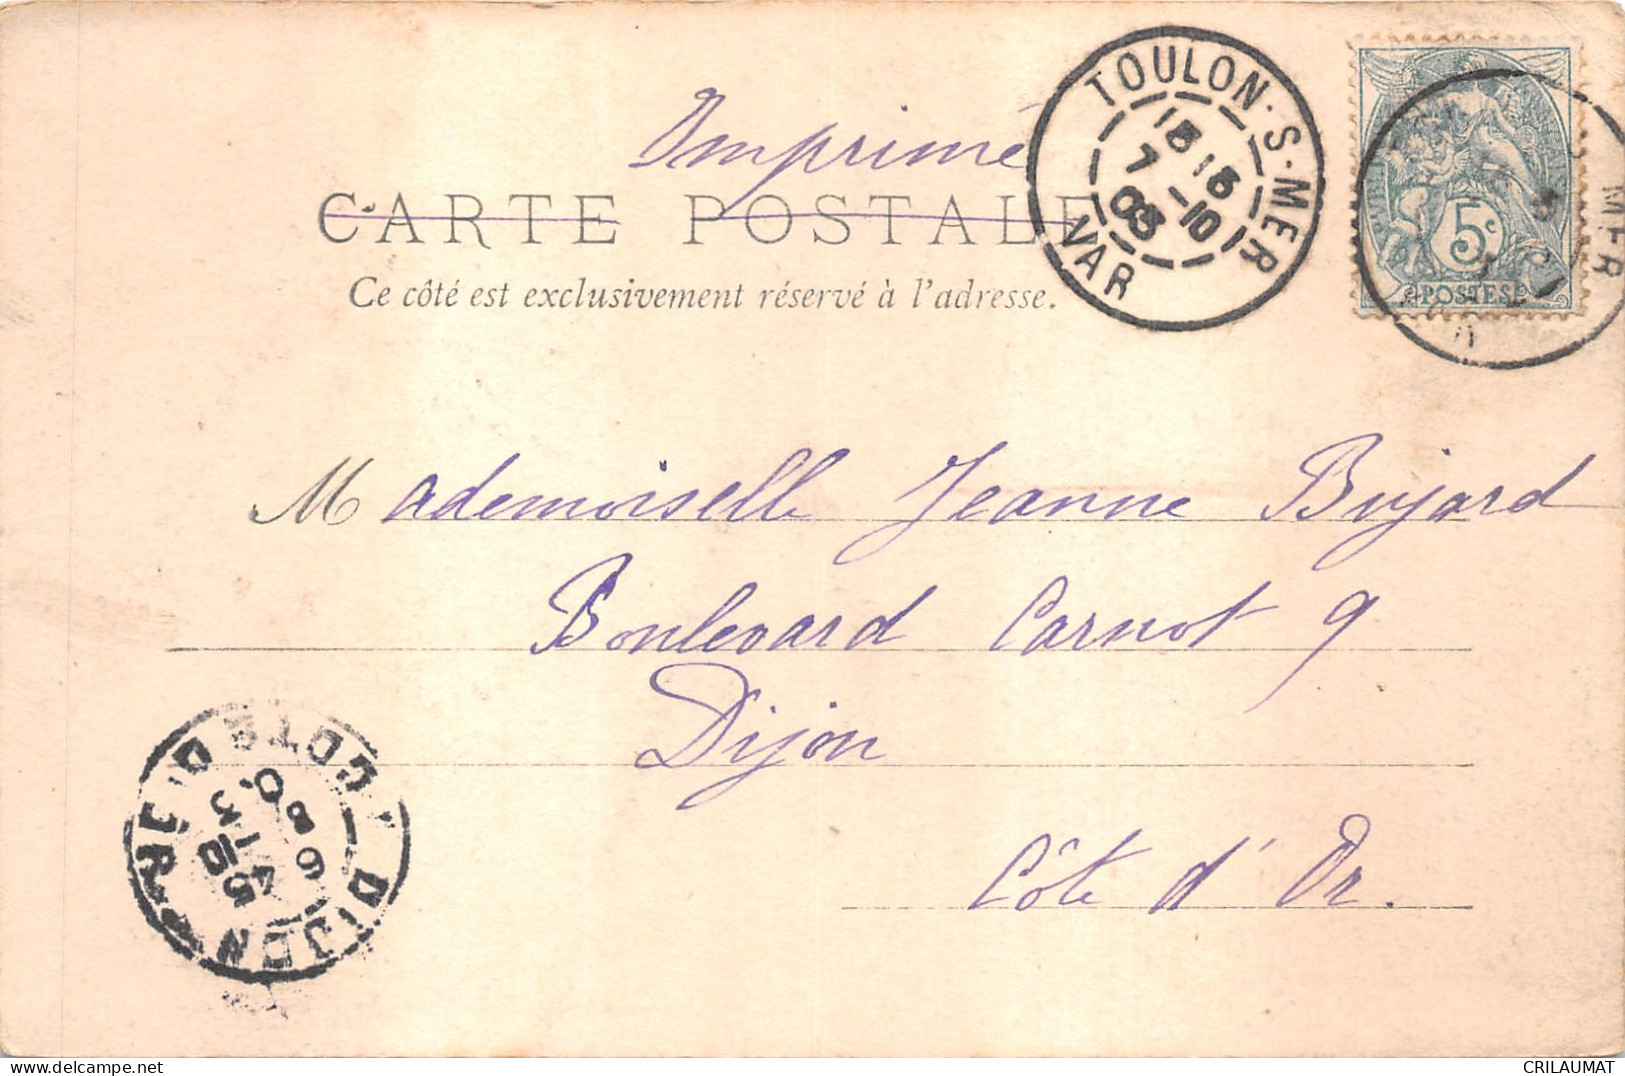 Imprimé
CARTE POSTALE
Ce côté est exclusivement réservé à l'adresse.
TOULON-S-MER
15 15
7 -10
03
VAR
5c
POSTES
MER
Mademoiselle Jeanne Bujard
Boulevard Carnot 9
Dijon
Côte d'Or.
DIJON
COTE D'OR
CRILAUMAT